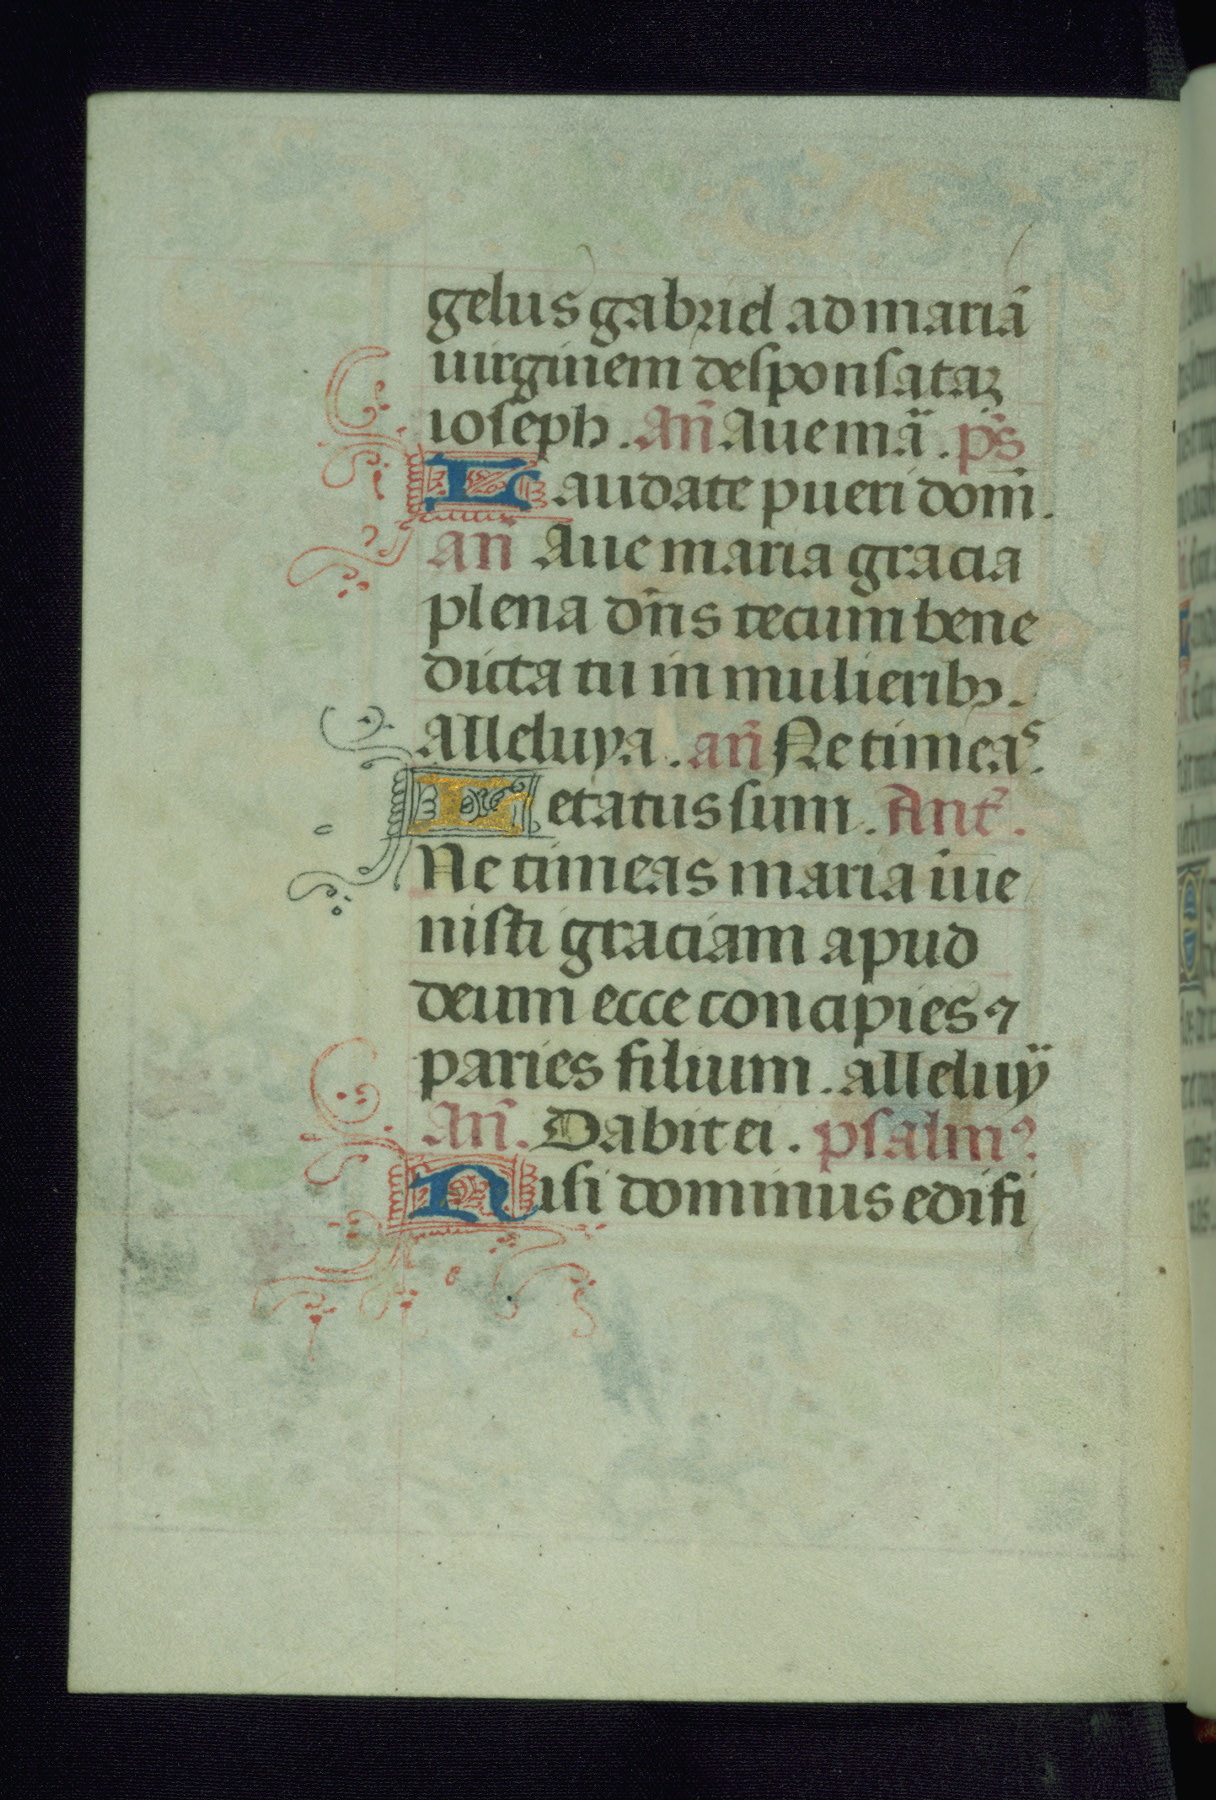 gelus gabriel ad mariā
uirginem desponsataꝫ
ioseph. an̄ Aue mā. ps̄
Laudate pueri dom̄.
an̄ Aue maria gracia
plena dn̄s tecum bene
dicta tu in mulieribꝫ.
alleluya. an̄ Ne timeas.
Letatus sum. Ant̄.
Ne timeas maria īue
nisti graciam apud
deum ecce concipies ⁊
paries filium. alleluÿ
An̄. Dabit ei. psalmꝰ
Nisi dominus edifi